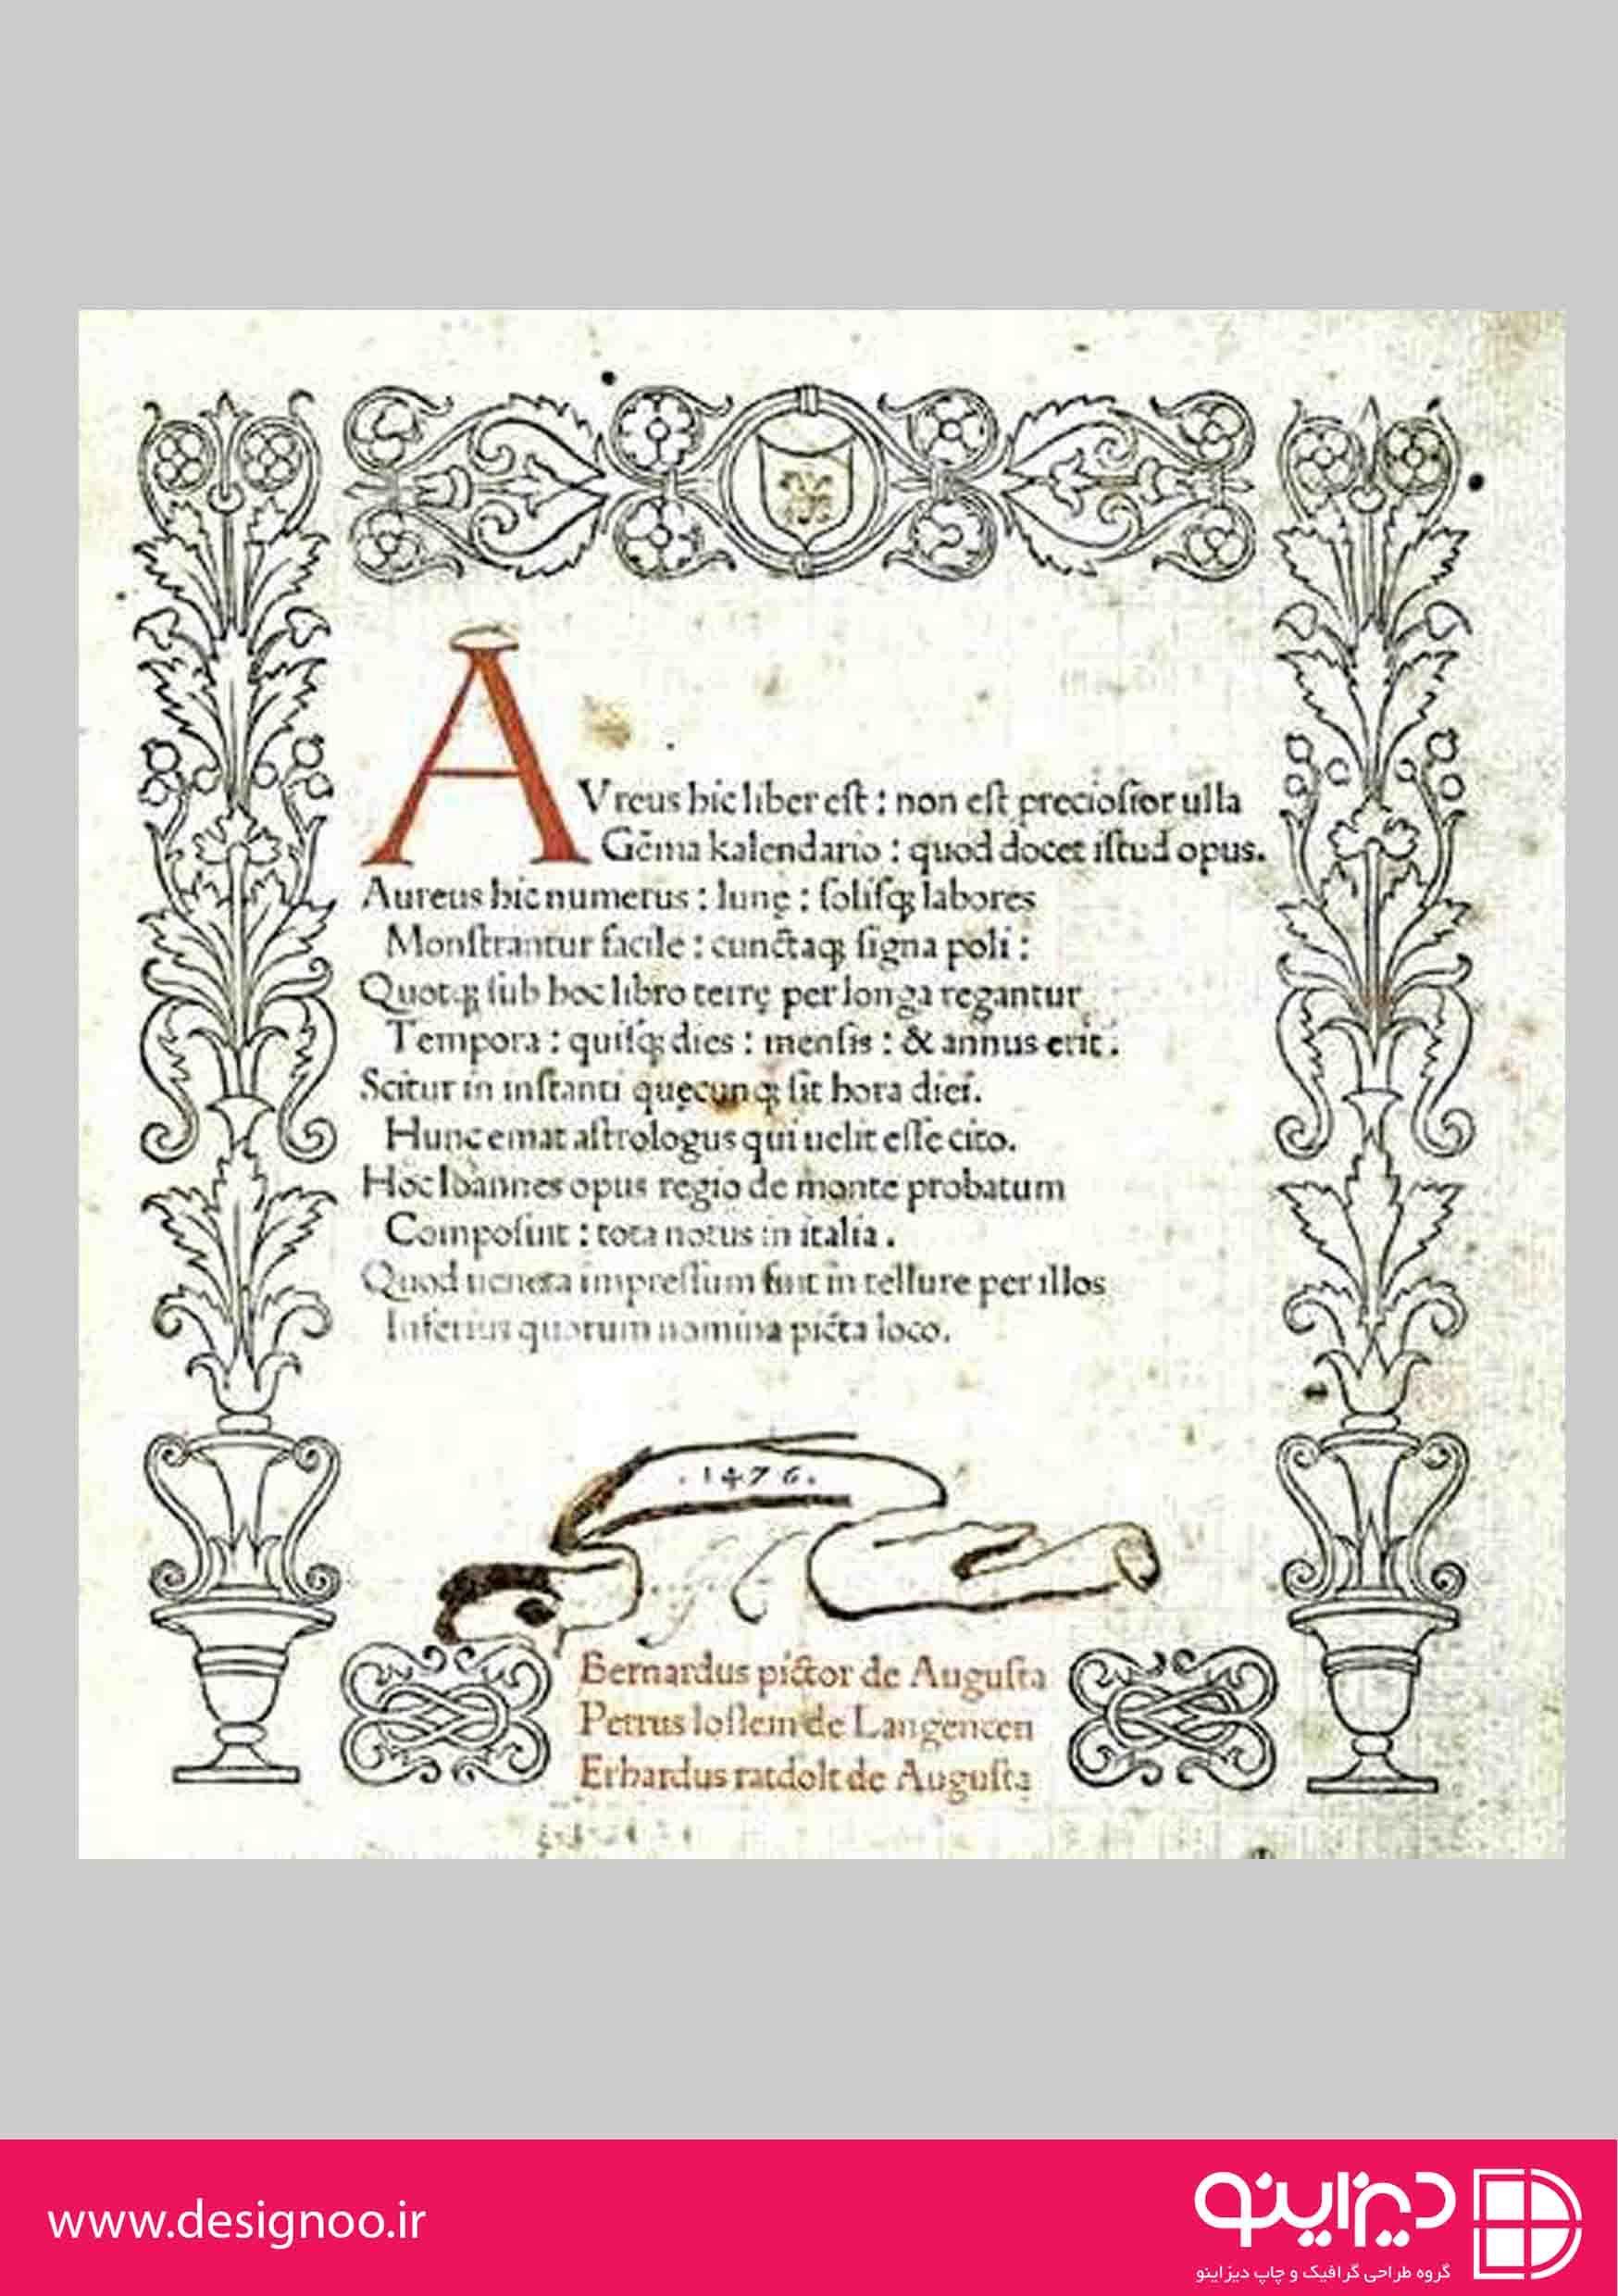 AVreus hic liber eſt : non eſt precioſior ulla
Gẽma kalendario : quod docet iſtud opus.
Aureus hic numerus : lunę : ſoliſqꝫ labores
Monſtrantur facile : cunctaqꝫ ſigna poli :
Quotqꝫ ſub hoc libro terrę per longa regantur
Tempora : quiſqꝫ dies : menſis : & annus erit .
Scitur in inſtanti quęcunqꝫ ſit hora diei.
Hunc emat aſtrologus qui uelit eſſe cito.
Hoc Ioannes opus regio de monte probatum
Compoſuit : tota notus in italia .
Quod ueneta impreſſum fuit in tellure per illos
Inferius quorum nomina picta loco.
. 1476 .
Bernardus pictor de Auguſta
Petrus loſlein de Langencen
Erhardus ratdolt de Auguſta
www.designoo.ir
دیزاینو
گروه طراحی گرافیک و چاپ دیزاینو